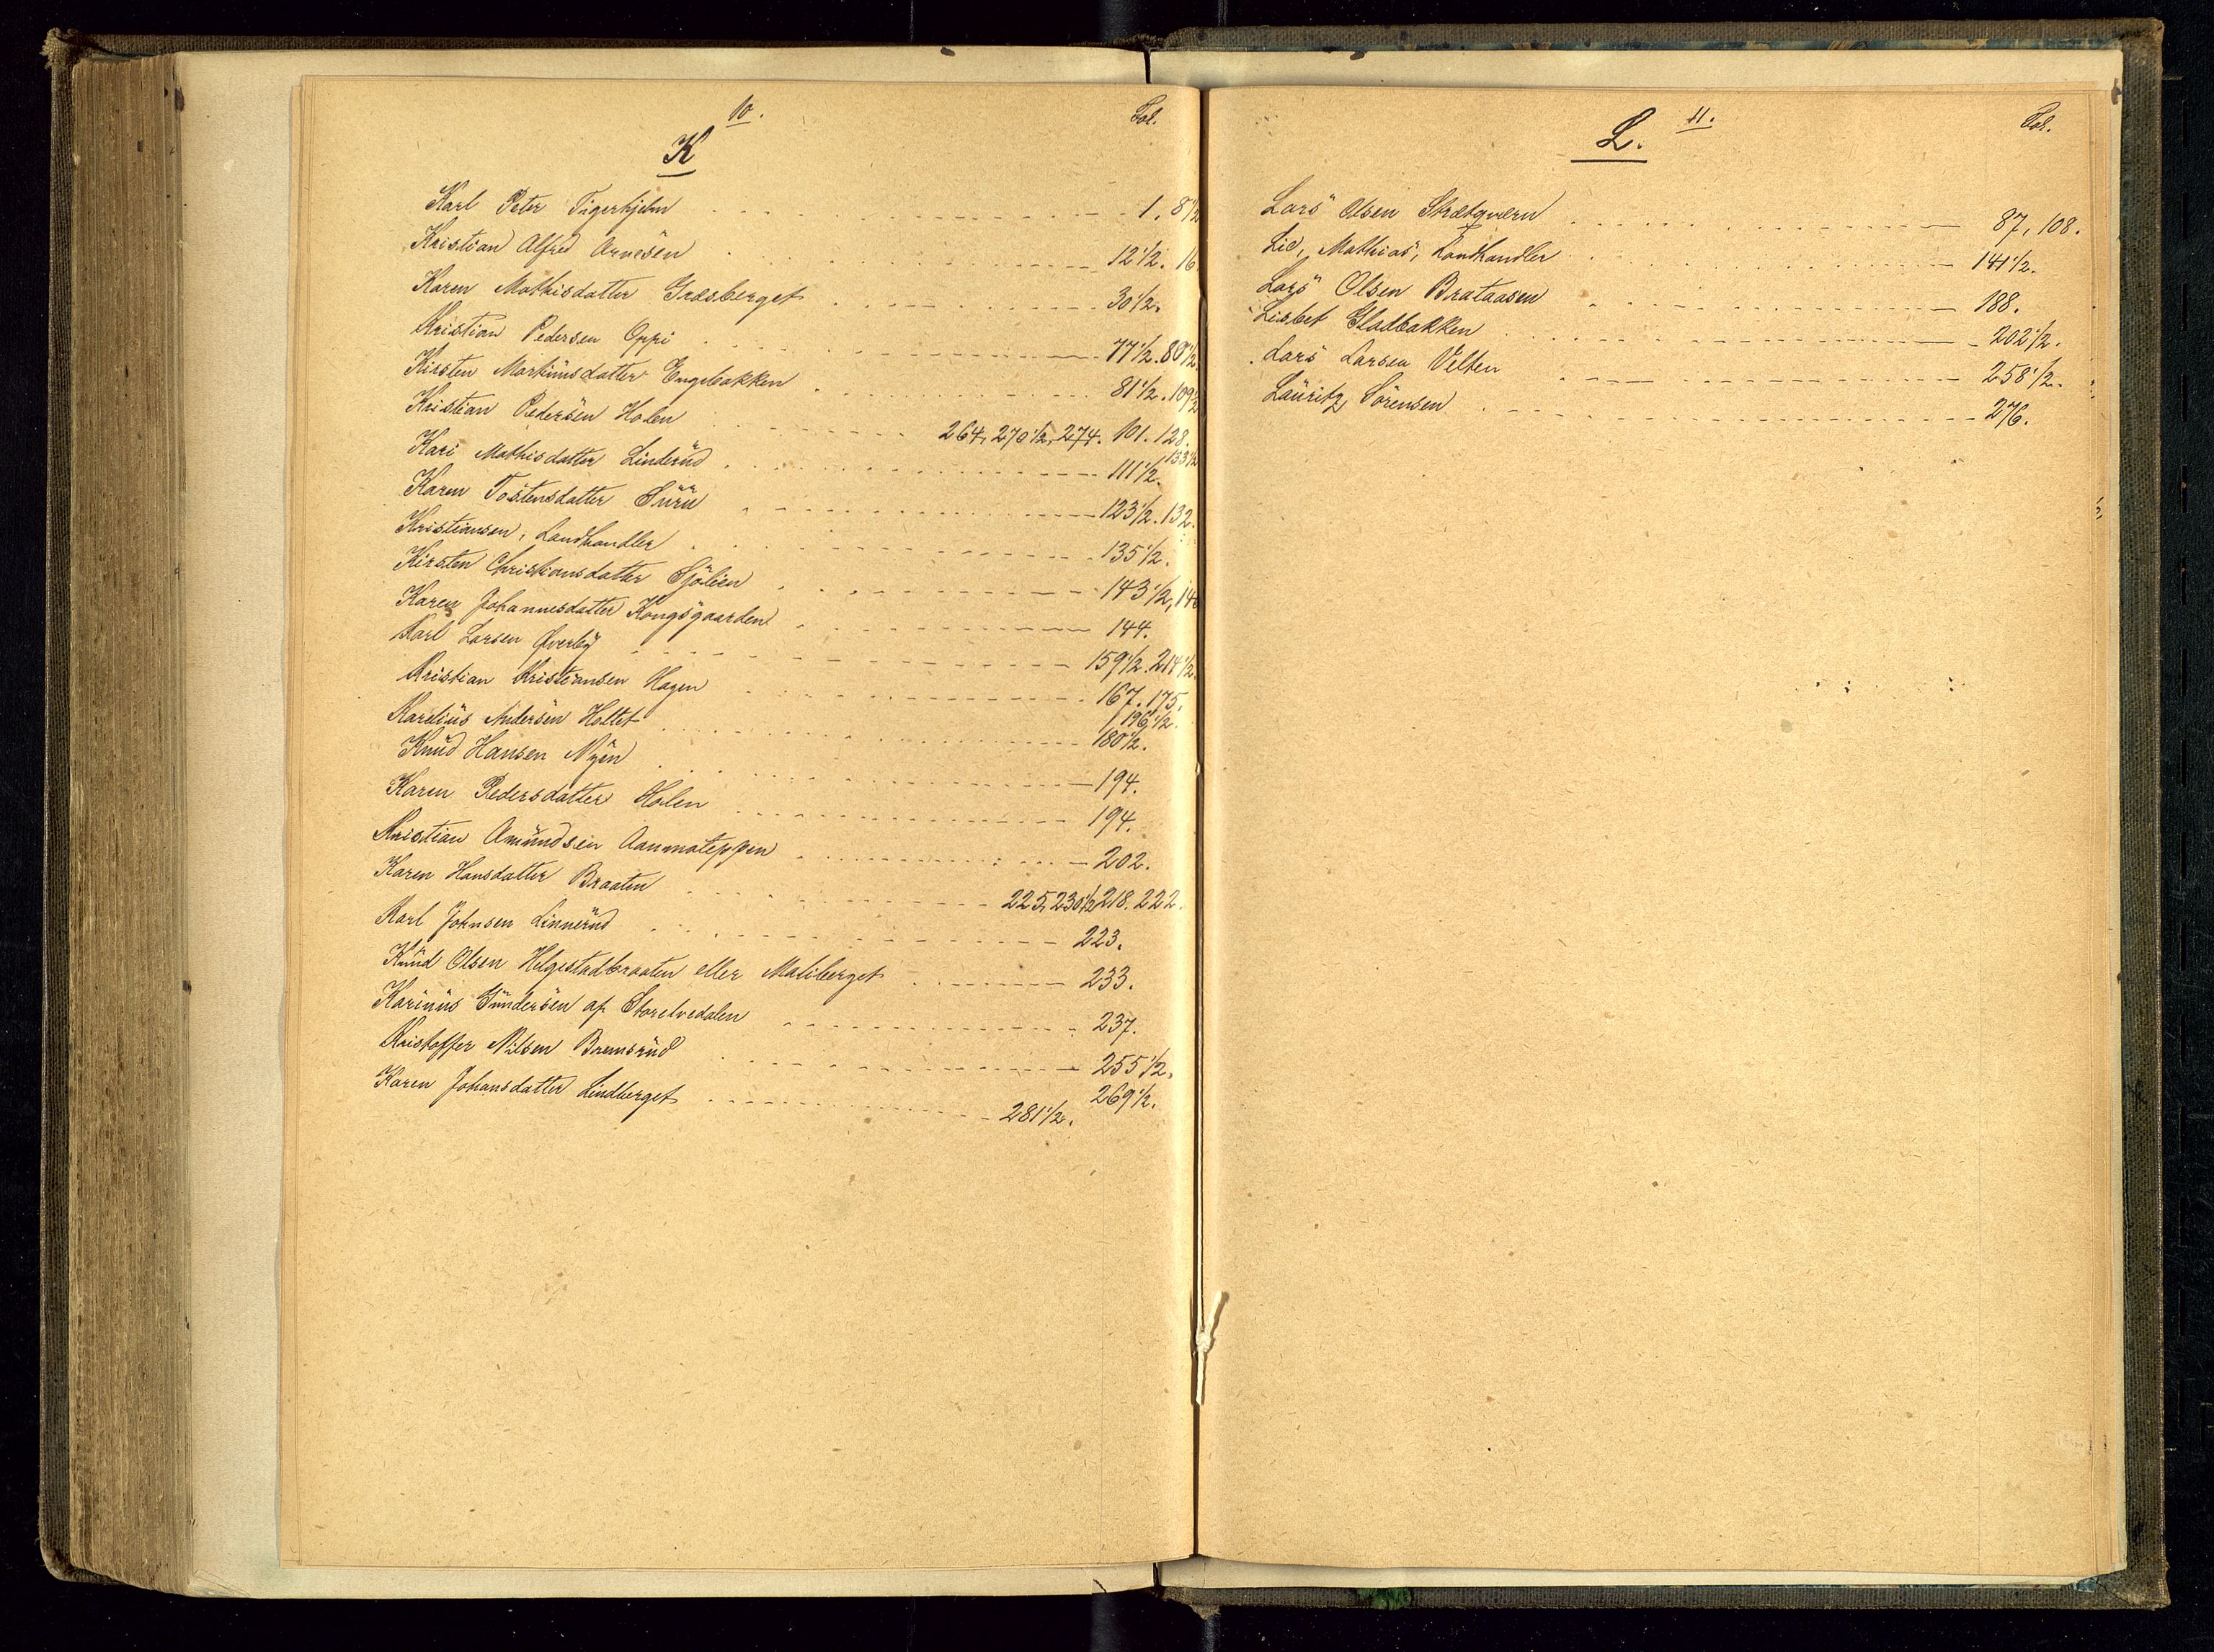 10.
Fol.
K
Karl Peter Tigerhjelm 1. 8 1/2
Kristian Alfred Arnesen 12 1/2. 16
Karen Mathisdatter Græsberget 30 1/2.
Kristian Pedersen Oppi 77 1/2. 80 1/2
Kirsten Martinusdatter Engebakken 81 1/2. 109 1/2
Kristian Pedersen Holen 264, 270 1/2, 274. 101. 128. 133 1/2
Kari Mathisdatter Linderud 111 1/2.
Karen Tostensdatter 123 1/2. 132.
Kristiansen, Landhandler 135 1/2.
Kirsten Christiansdatter Sjölien 143 1/2, 146
Karen Johannesdatter Kongsgaarden 144.
Karl Larsen Øverby 159 1/2. 214 1/2.
Kristian Kristiansen Hagen 167. 175. 196 1/2.
Karelius Andersen Holtet 180 1/2.
Knud Hansen Nyen 194.
Karen Pedersdatter Holen 194.
Kristian Amundsen 202.
Karen Hansdatter Braaten 225, 230 1/2 218. 222.
Karl Johnsen Linnerud 223.
Knud Olsen Helgestadbraaten eller Maliberget 233.
Karinus Gundersen af Storelvedalen 237.
Kristoffer Nilsen Bremsrud 255 1/2.
269 1/2.
Karen Johansdatter Lindberget 281 1/2.
11.
Fol.
L.
Lars Olsen Strætqvern 87, 108.
Lie, Mathias, Landhandler 141 1/2.
Lars Olsen Brataasen 188.
Lisbet Gladbakken 202 1/2.
Lars Larsen Velten 258 1/2.
Lauritz Sörensen 276.